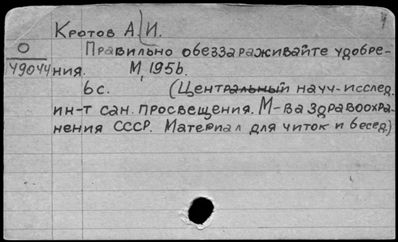 Кротов А. И.
О
49044
Правильно обеззараживайте удобре-
ния. М 1956.
6с. (Центральный науч-исслед.
ин-т сан. просвещения. М-ва здравоохра-
нения СССР. Материал для читок и бесед)